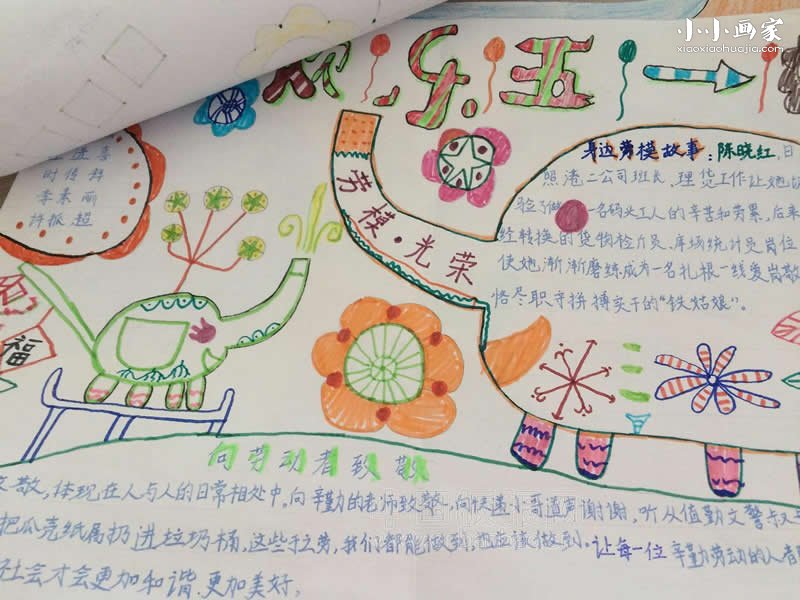 小小画家
xiaoxiaohuajia.com
五
乐
进喜
时传祥
李素丽
许振超
福
劳模·光荣
身边劳模故事:陈晓红,日
照港二公司班长、理货工作让她
验了做一名码头工人的辛苦和劳累,后来
经转换的货物检斤员、库场统计员岗位
使她渐渐磨练成为一名扎根一线爱岗敬
恪尽职守拼搏实干的“铁姑娘”。
向劳动者致敬
致敬,体现在人与人的日常相处中,向辛勤的老师致敬,向快递小哥道声谢谢,听从值勤交警叔
把瓜壳纸屑扔进垃圾桶,这些手劳,我们都能做到,也应该做到。让每一位辛勤劳动的人者
社会才会更加和谐、更加美好。